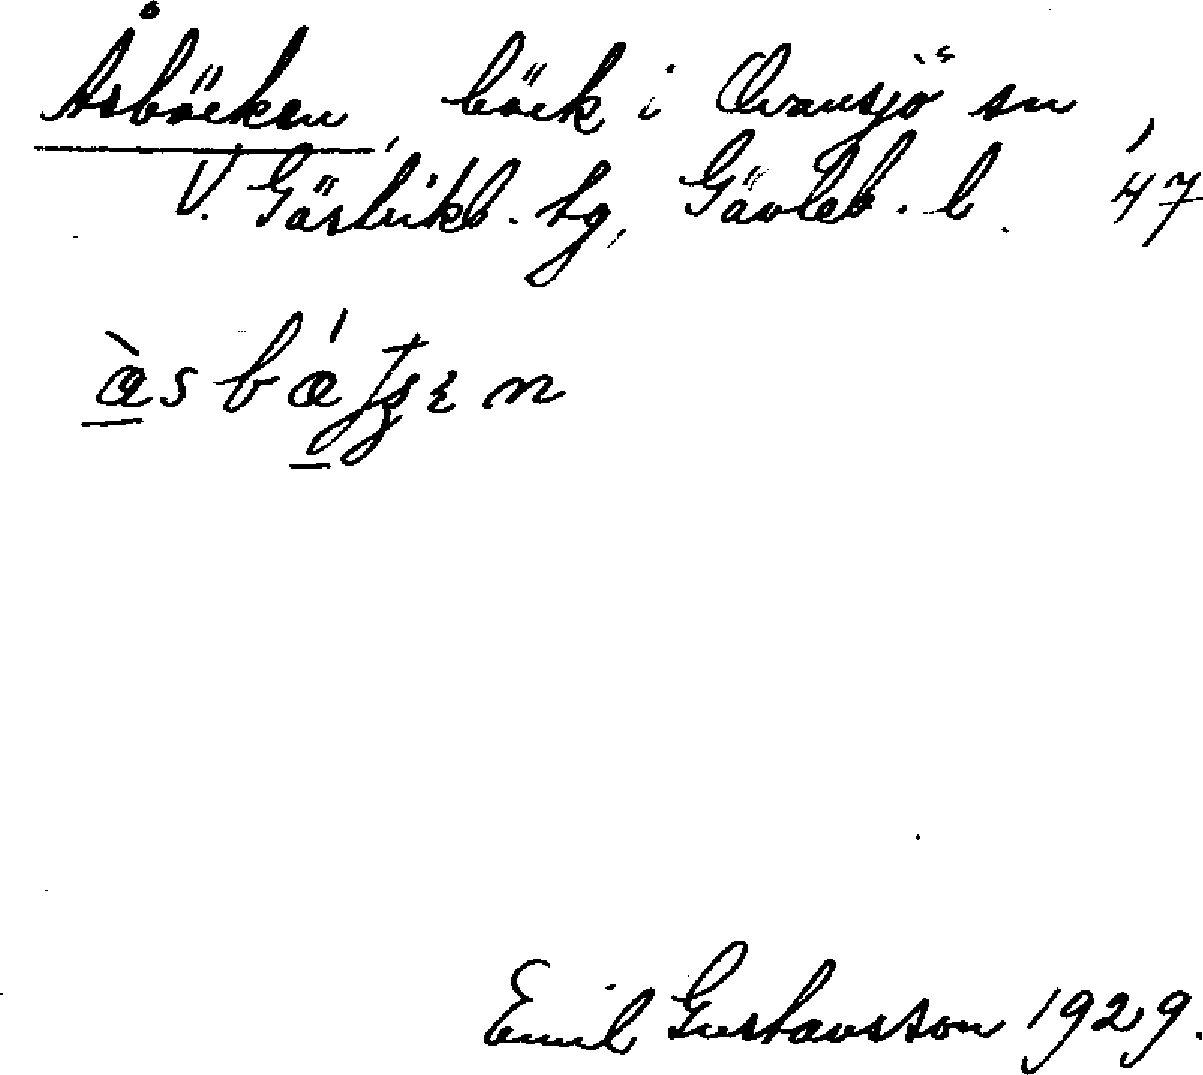 Åsbäcken, bäck i Ovansjö sn,
V. Gästrikl. tg, Gävleb. l. 47
Emil Gustavsson 1929.